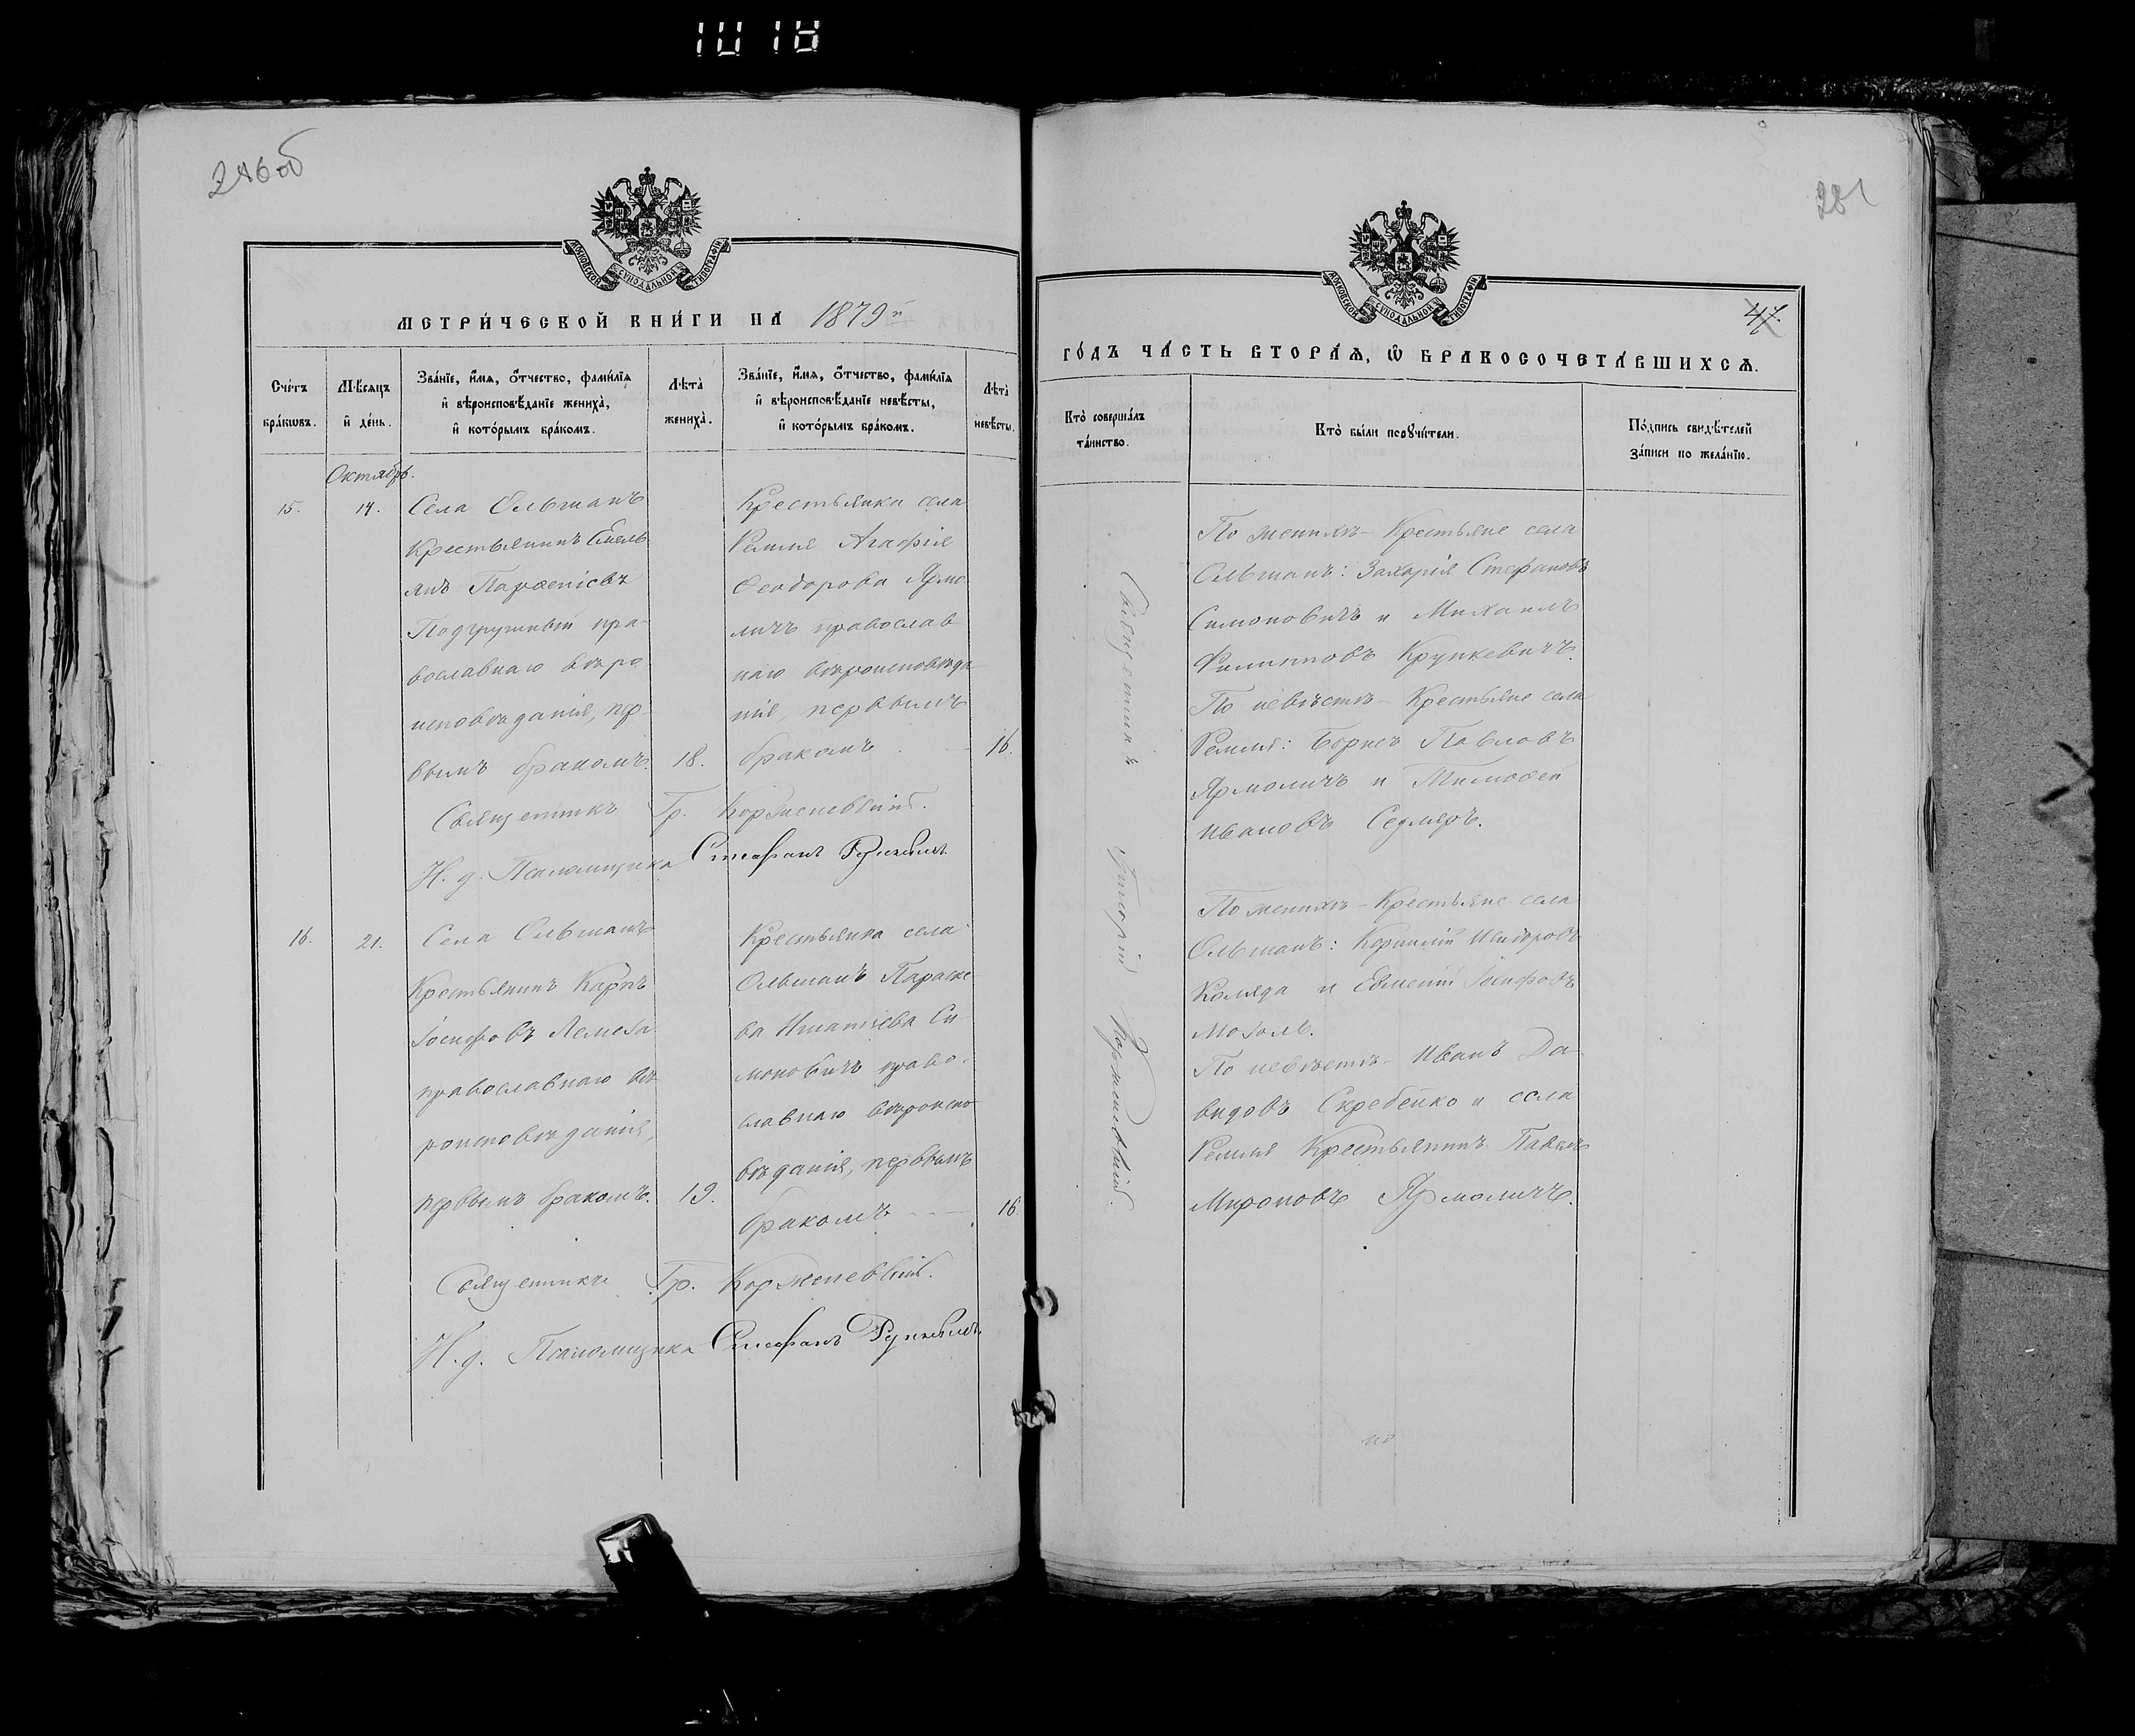 1018
246об
МОСКОВСКОЙ СѴНОДАЛЬНОЙ ТИПОГРАФІИ
МЕТРИ́ЧЕСКОЙ КНИ́ГИ НА 1879й
Сче́тъ бра́кωвъ.
Мѣ́сяцъ и҆ де́нь.
Зва́нїе, и҆́мя, ѻ҆́тчество, фами́лїя
и҆ вѣроисповѣ́данїе жениха̀,
и҆ кото́рымъ бра́комъ.
Лѣта̀ жениха̀.
Зва́нїе, и҆́мя, ѻ҆́тчество, фами́лїя
и҆ вѣроисповѣ́данїе невѣ́сты,
и҆ кото́рымъ бра́комъ.
Лѣта̀ невѣ́сты.
Октябрь.
15.
14.
Села Ольшанъ
Крестьянинъ Емель
янъ Парѳеніевъ
Подгрушный пра-
вославнаго вѣро
исповѣданія, пер-
вымъ бракомъ.
18.
Крестьянка села
Ремля Агафія
Ѳеодорова Ярмо
личъ православ
наго вѣроисповѣда
нія, первымъ
бракомъ
16.
Священникъ Гр. Корженевскій.
И. д. Псаломщика Стефанъ
16.
21.
Села Ольшанъ
Крестьянинъ Карпъ
Іосифовъ Лемеха
православнаго вѣ-
роисповѣданія,
первымъ бракомъ.
19.
Крестьянка села
Ольшанъ Параске-
ва Игнатіева Си-
моновичъ право-
славнаго вѣроиспо
вѣданія, первымъ
бракомъ
16.
Священникъ Гр. Корженевскій.
И. д. Псаломщика Стефанъ
281
47.
МОСКОВСКОЙ СѴНОДАЛЬНОЙ ТИПОГРАФІИ
ГО́ДЪ ЧА́СТЬ ВТОРА́Ѧ, Ѽ БРАКОСОЧЕТА́ВШИХСѦ.
Кто̀ соверша́лъ
та́инство.
Кто̀ бы́ли порꙋчи́тели.
По́дпись свидѣ́телей
за́писи по жела́нїю.
Священникъ Григорій Корженевскій.
По женихѣ – Крестьяне села
Ольшанъ: Захарія Стефановъ
Симоновичъ и Михаилъ
Филипповъ Крупкевичъ.
По невѣстѣ – Крестьяне села
Ремля: Борисъ Павловъ
Ярмоличъ и Тимоѳей
Ивановъ Седляръ.
По женихѣ – Крестьяне села
Ольшанъ: Корнилій Исидоровъ
Коляда и Евменій Іосифовъ
Мозоль.
По невѣстѣ – Иванъ Да-
видовъ Скребейко и села
Ремля Крестьянинъ Павелъ
Мироновъ Ярмоличъ.